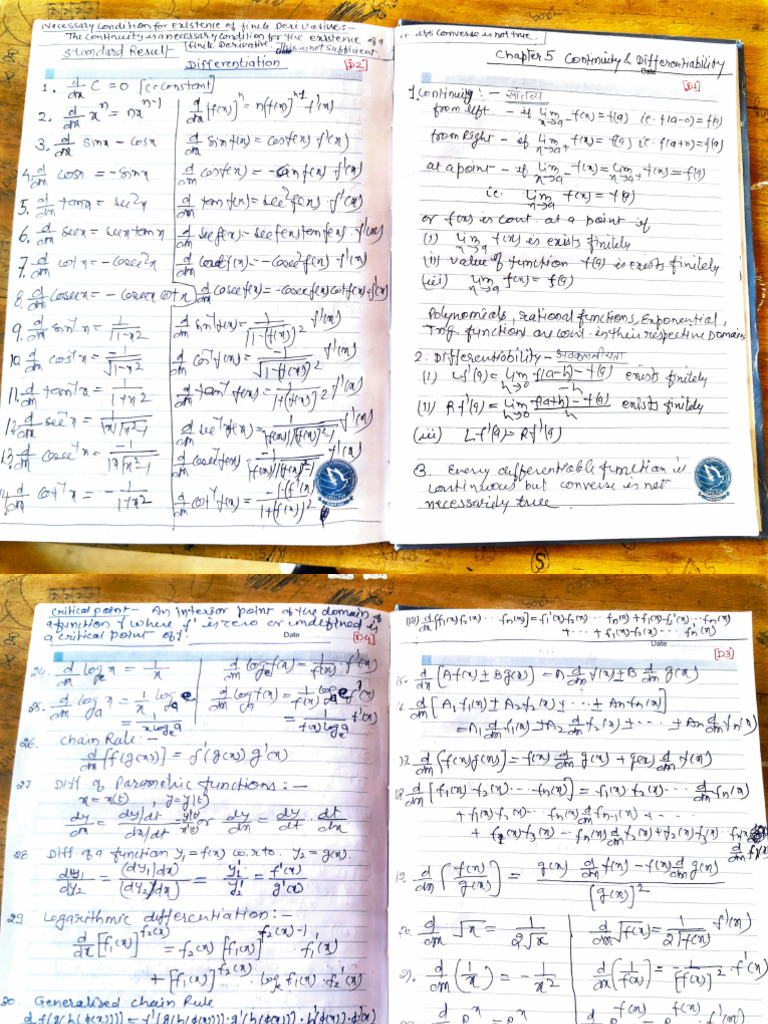 Necessary condition for existence of finite Derivative:-
The continuity is a necessary condition for the existence of a
finite Derivative. This is not sufficient
Standard Result
[D2]
Differentiation
1. d/dx C = 0 [c = constant]
2. d/dx xⁿ = nxⁿ⁻¹ d/dx [f(x)]ⁿ = n[f(x)]ⁿ⁻¹ f'(x)
3. d/dx sinx = cosx d/dx sinf(x) = cosf(x) f'(x)
4. d/dx cosx = -sinx d/dx cosf(x) = -sinf(x) f'(x)
5. d/dx tanx = sec²x d/dx tanf(x) = sec²f(x) · f'(x)
6. d/dx secx = secx tanx d/dx secf(x) = secf(x) tanf(x) · f'(x)
7. d/dx cotx = -cosec²x d/dx cotf(x) = -cosec²f(x) · f'(x)
8. d/dx cosecx = -cosecx cotx d/dx cosecf(x) = -cosecf(x) cotf(x) · f'(x)
9. d/dx sin⁻¹x = 1/√(1-x²) d/dx sin⁻¹f(x) = 1/√(1-[f(x)]²) f'(x)
10. d/dx cos⁻¹x = -1/√(1-x²) d/dx cos⁻¹f(x) = -1/√(1-[f(x)]²) f'(x)
11. d/dx tan⁻¹x = 1/(1+x²) d/dx tan⁻¹f(x) = 1/(1+[f(x)]²) f'(x)
12. d/dx sec⁻¹x = 1/(|x|√(x²-1)) d/dx sec⁻¹f(x) = 1/(|f(x)|√([f(x)]²-1)) f'(x)
13. d/dx cosec⁻¹x = -1/(|x|√(x²-1)) d/dx cosec⁻¹f(x) = -1/(|f(x)|√([f(x)]²-1)) f'(x)
14. d/dx cot⁻¹x = -1/(1+x²) d/dx cot⁻¹f(x) = -1·f'(x)/(1+[f(x)]²)
its converse is not true.
Chapter 5 Continuity & Differentiability
Date
[D1]
1. Continuity :- सांतत्य
from left - if lim x→a⁻ f(x) = f(a) i.e. f(a-0) = f(a)
from Right - if lim x→a⁺ f(x) = f(a) i.e. f(a+0) = f(a)
at a point - if lim x→a⁻ f(x) = lim x→a⁺ f(x) = f(a)
i.e. lim x→a f(x) = f(a)
or f(x) is cont. at a point if
(i) lim x→a f(x) is exists finitely
(ii) value of function f(a) is exists finitely
(iii) lim x→a f(x) = f(a)
Polynomials, rational functions, Exponential,
Trig. function are cont. in their respective Domain
2. Differentiability - अवकलनीयता
(i) Lf'(a) = lim h→0 f(a-h)-f(a)/-h exists finitely
(ii) Rf'(a) = lim h→0 f(a+h)-f(a)/h exists finitely
(iii) Lf'(a) = Rf'(a)
3. Every differentiable function is
continuous but converse is not
necessarily true.
(5)
Critical point - An interior point of the domain of
a function f where f' is zero or undefined is
a critical point of f.
Date
[D4]
24. d/dx logₑx = 1/x d/dx logₑf(x) = 1/f(x) · f'(x)
25. d/dx logₐx = 1/x logₐe d/dx logₐf(x) = 1/f(x) logₐe f'(x)
= 1/(x logₑa) = 1/(f(x) logₑa) f'(x)
26. Chain Rule:
d/dx [f(g(x))] = f'(g(x)) g'(x)
27 Diff. of Parametric functions :-
x = x(t) y = y(t)
dy/dx = (dy/dt)/(dx/dt) = y'(t)/x'(t) or dy/dx = dy/dt · dt/dx
28 Diff of a function y₁ = f(x) w.r.to. y₂ = g(x).
dy₁/dy₂ = (dy₁/dx)/(dy₂/dx) = y₁'/y₂' = f'(x)/g'(x)
29 Logarithmic differentiation :-
d/dx [f₁(x)]^f₂(x) = f₂(x) [f₁(x)]^(f₂(x)-1) · f₁'(x)
+ [f₁(x)]^f₂(x) · logₑf₁(x) · f₂'(x)
30. Generalised Chain Rule
d f(g(h(φ(x)))) = f'(g(h(φ(x)))) · g'(h(φ(x))) · h'(φ(x)) · φ'(x)
d/dx [f₁(x) f₂(x) ··· fₙ(x)] = f₁'(x) f₂(x) ··· fₙ(x) + f₁(x) f₂'(x) ··· fₙ(x)
+ ··· + f₁(x) f₂(x) ··· fₙ'(x)
Date
[D3]
15. d/dx [Af(x) ± Bg(x)] = A d/dx f(x) ± B d/dx g(x)
d/dx [A₁f₁(x) ± A₂f₂(x) ± ··· ± Aₙfₙ(x)]
= A₁ d/dx f₁(x) ± A₂ d/dx f₂(x) ± ··· ± Aₙ d/dx fₙ(x)
17. d/dx [f(x) g(x)] = f(x) d/dx g(x) + g(x) d/dx f(x)
18. d/dx [f₁(x) · f₂(x) ··· fₙ(x)] = f₁(x) f₂(x) ··· d/dx fₙ(x)
+ f₁(x) f₂(x) ··· fₙ(x) d/dx fₙ₋₁(x) + ···
+ f₂(x) f₃(x) ··· fₙ(x) d/dx
19. d/dx (f(x)/g(x)) = (g(x) d/dx f(x) - f(x) d/dx g(x))/[g(x)]²
20. d/dx √x = 1/(2√x) d/dx √f(x) = 1/(2√f(x)) f'(x)
21. d/dx (1/x) = -1/x² d/dx (1/f(x)) = -1/[f(x)]² · f'(x)